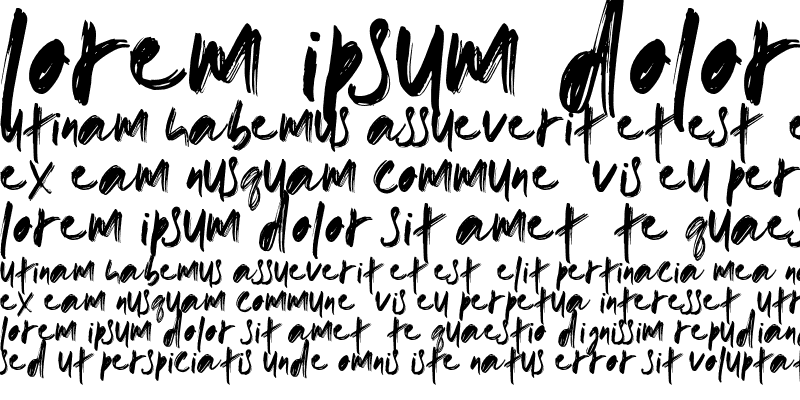 lorem ipsum dolor
utinam habemus assueverit et est e
ex eam nusquam commune vis eu per
lorem ipsum dolor sit amet te quaes
utinam habemus assueverit et est elit pertinacia mea no
ex eam nusquam commune vis eu perpetua interesset utr
lorem ipsum dolor sit amet te quaestio dignissim repudian
sed ut perspiciatis unde omnis iste natus error sit voluptat